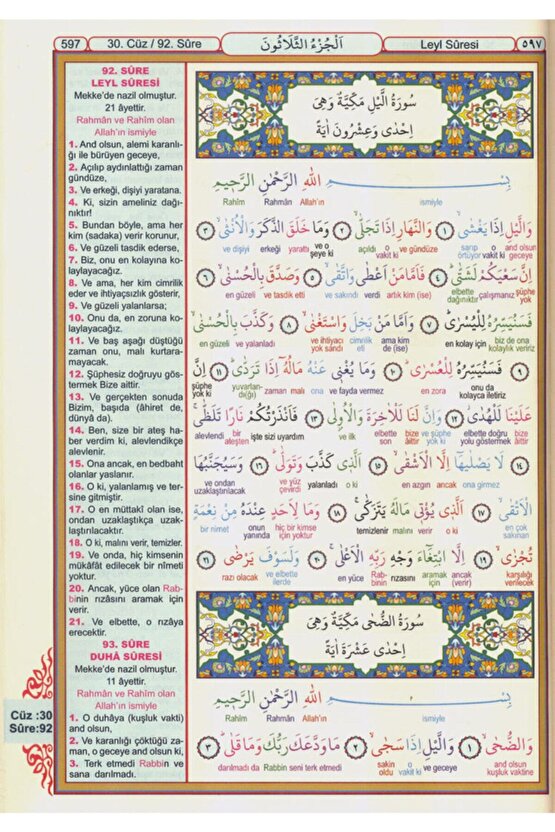 597
30. Cüz / 92. Sûre
اَلْجُزْءُ الثَّلَاثُونَ
Leyl Sûresi
٥٩٧
92. SÛRE
LEYL SÛRESİ
Mekke'de nazil olmuştur.
21 âyettir.
Rahmân ve Rahîm olan
Allah'ın ismiyle
1. And olsun, alemi karanlı-
ğı ile bürüyen geceye,
2. Açılıp aydınlattığı zaman
gündüze,
3. Ve erkeği, dişiyi yaratana.
4. Ki, sizin ameliniz dağı-
nıktır!
5. Bundan böyle, ama her
kim (sadaka) verir korunur,
6. Ve güzeli tasdik ederse,
7. Biz, onu en kolayına ko-
laylayacağız.
8. Ve ama, her kim cimrilik
eder ve ihtiyaçsızlık gösterir,
9. Ve güzeli yalanlarsa;
10. Onu da, en zoruna ko-
laylayacağız.
11. Ve baş aşağı düştüğü
zaman onu, malı kurtara-
mayacak.
12. Şüphesiz doğruyu gös-
termek Bize aittir.
13. Ve gerçekten sonuda
Bizim, başıda (âhiret de,
dünyâ da).
14. Ben, size bir ateş ha-
ber verdim ki, alevlendikçe
alevlenir.
15. Ona ancak, en bedbaht
olanlar yaslanır.
16. O ki, yalanlamış ve ter-
sine gitmiştir.
17. O en müttakî olan ise,
ondan uzaklaştıkça uzak-
laştırılacaktır.
18. O ki, malını verir, temizler.
19. Ve onda, hiç kimsenin
mükâfât edilecek bir nîmeti
yoktur.
20. Ancak, yüce olan Rab-
binin rızâsını aramak için
verir.
21. Ve elbette, o rızâya
erecektir.
93. SÛRE
DUHÂ SÛRESİ
Mekke'de nazil olmuştur.
11 âyettir.
Rahmân ve Rahîm olan
Allah'ın ismiyle
1. O duhâya (kuşluk vakti)
and olsun,
2. Ve karanlığı çöktüğü za-
man, o geceye and olsun ki,
3. Terk etmedi Rabbin ve
sana darılmadı.
Cüz :30
Sûre:92
سُورَةُ الَّيْلِ مَكِّيَّةٌ وَهِىَ
اِحْدٰى وَعِشْرُونَ اٰيَةً
بِسْمِ اللّٰهِ الرَّحْمٰنِ الرَّحِيمِ
Rahîm Rahmân Allah'ın ismiyle
وَالَّيْلِ اِذَا يَغْشٰىۙ ١ وَالنَّهَارِ اِذَا تَجَلّٰىۙ ٢ وَمَا خَلَقَ الذَّكَرَ وَالْاُنْثٰىۙ ٣
ve dişiyi erkeği yarattı ve o şeye ki açıldı o vakit ki ve gündüze sarıp örtüyor o vakit ki and olsun geceye
اِنَّ سَعْيَكُمْ لَشَتّٰىۜ ٤ فَاَمَّا مَنْ اَعْطٰى وَاتَّقٰىۙ ٥ وَصَدَّقَ بِالْحُسْنٰىۙ ٦
en güzeli ve tasdik etti ve sakındı verdi artık kim (ise) elbette dağınıktır çalışmanız şüphe yok
فَسَنُيَسِّرُهُ لِلْيُسْرٰىۜ ٧ وَاَمَّا مَنْ بَخِلَ وَاسْتَغْنٰىۙ ٨ وَكَذَّبَ بِالْحُسْنٰىۙ
en güzeli ve yalanladı ve ihtiyacı yok sandı cimrilik etti ama kim de (ise) en kolay için biz de ona kolaylık veririz
٩ فَسَنُيَسِّرُهُ لِلْعُسْرٰىۜ ١٠ وَمَا يُغْنِى عَنْهُ مَالُهُٓ اِذَا تَرَدّٰىۜ ١١ اِنَّ
şüphe yok ki yuvarlan-dığı) zaman malı ona ve fayda vermez en zora onu da kolayca iletiriz
عَلَيْنَا لَلْهُدٰىۘ ١٢ وَاِنَّ لَنَا لَلْاٰخِرَةَ وَالْاُو۫لٰى ١٣ فَاَنْذَرْتُكُمْ نَارًا تَلَظّٰىۚ
alevlendi bir ateşten işte sizi uyardım ve ilk elbette son bize aittir ve şüphe yok ki elbette doğru yolu göstermek bize aittir
١٤ لَا يَصْلٰيهَٓا اِلَّا الْاَشْقٰىۙ ١٥ اَلَّذِى كَذَّبَ وَتَوَلّٰىۜ ١٦ وَسَيُجَنَّبُهَا
ve ondan uzaklaştırılacak ve yüz çevirdi yalanladı o ki en azgın ancak ona girmez
الْاَتْقٰىۙ ١٧ اَلَّذِى يُؤْتِى مَالَهُ يَتَزَكّٰىۚ ١٨ وَمَا لِاَحَدٍ عِنْدَهُ مِنْ نِعْمَةٍ
bir nimet onun yanında hiç bir kimse için yoktur temizlenir malını verir o ki en çok sakınan
تُجْزٰىۙ ١٩ اِلَّا ابْتِغَٓاءَ وَجْهِ رَبِّهِ الْاَعْلٰىۚ ٢٠ وَلَسَوْفَ يَرْضٰى ٢١
razı olacak ve elbette ilerde en yüce Rab-binin rızasını aramak için ancak (verir) karşılığı verilecek
سُورَةُ الضُّحٰى مَكِّيَّةٌ وَهِىَ
اِحْدٰى عَشْرَةَ اٰيَةً
بِسْمِ اللّٰهِ الرَّحْمٰنِ الرَّحِيمِ
Rahîm Rahmân Allah'ın ismiyle
وَالضُّحٰىۙ ١ وَالَّيْلِ اِذَا سَجٰىۙ ٢ مَا وَدَّعَكَ رَبُّكَ وَمَا قَلٰىۜ ٣
darılmadı da Rabbin seni terk etmedi sakin oldu o vakit ki ve geceye and olsun kuşluk vaktine